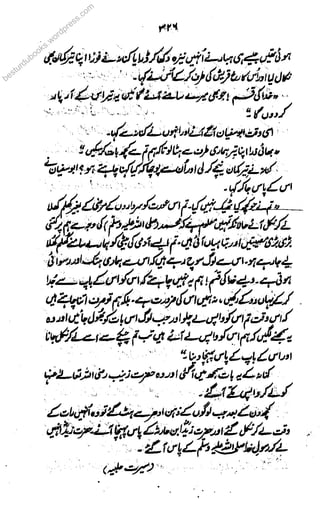 ۳۲۶
ہوئی تھیں جیسے ہی ہبار نے انہیں نیزہ دکھا کر ڈرایا کنانہ نے فوراً اپنا تیر کمان بھی
نکال لیا اور اس کا رخ قریش کی طرف کر کے اس نے کہا۔
"خدا کی قسم! جو بھی میرے سامنے آئے گا میں یہ تیر اس کے آر پار
کر دوں گا"
اسی وقت ابوسفیان آگے آئے اور انہوں نے کنانہ سے کہا۔
"بھائی ذرا اپنا تیر ہماری طرف سے ہٹا لو تاکہ ہم تم سے کچھ بات کر سکیں"
کنانہ نے تیر کمان نیچے کر لی اور ان سے پوچھا کہ کیا کہنا چاہتے ہو؟ ابوسفیان نے
اس کے پاس جا کر کہا۔
"تم نے یہ کچھ ٹھیک نہیں کیا۔ تم اس عورت کو سرداروں کے مرضی کے بغیر کھلم کھلا
لے کر نکل آئے حالانکہ تمہیں معلوم ہے کہ محمد (صلی اللہ علیہ وسلم) کی وجہ سے ہم پر کتنی
بڑی بڑی مصیبتیں اور تباہیاں آئی ہیں۔ تم ایسے آدمی کی بیٹی کو ہمارے سامنے کھلم کھلا
لیے جا رہے ہو۔ اس سے لوگ سوچ رہے ہیں کہ اس سے ہماری ہتک اور رسوائی
ہوتی ہے۔ ویسے خدا کی قسم! ہم یہ نہیں چاہتے کہ اس کو اس کے باپ سے جدا
کر کے یہاں روکے رکھیں، نہ ہمیں اس کی ضرورت ہے۔ بلکہ ہم تو صرف اتنا چاہتے ہیں
کہ اس وقت تم اس کو واپس لے چلو اور جب لوگ اس بات کو بھول جائیں اور وہ
یہ سمجھنے لگیں کہ ہم اس کو واپس لے آئے ہیں تب تم چپکے سے اسے لے کر نکل جانا
اور اس کے باپ کے پاس پہنچا دینا"
کنانہ کے یہ بات سمجھ میں آ گئی اور وہ حضرت زینب رضی اللہ تعالیٰ عنہا
کو لے کر واپس مکے آ گئے۔
کچھ دن کے بعد جب لوگوں کے ذہن ادھر سے ہٹ گئے تو وہ انہیں رات کے
وقت لے کر نکل گئے اور حضرت زید ابن حارثہ کے پاس پہنچا آئے حضرت زید انہیں
لے کر رسول خدا صلی اللہ علیہ وسلم کے پاس آ گئے۔
(سیرت حلبیہ)
bestурdubooks.wordpress.com